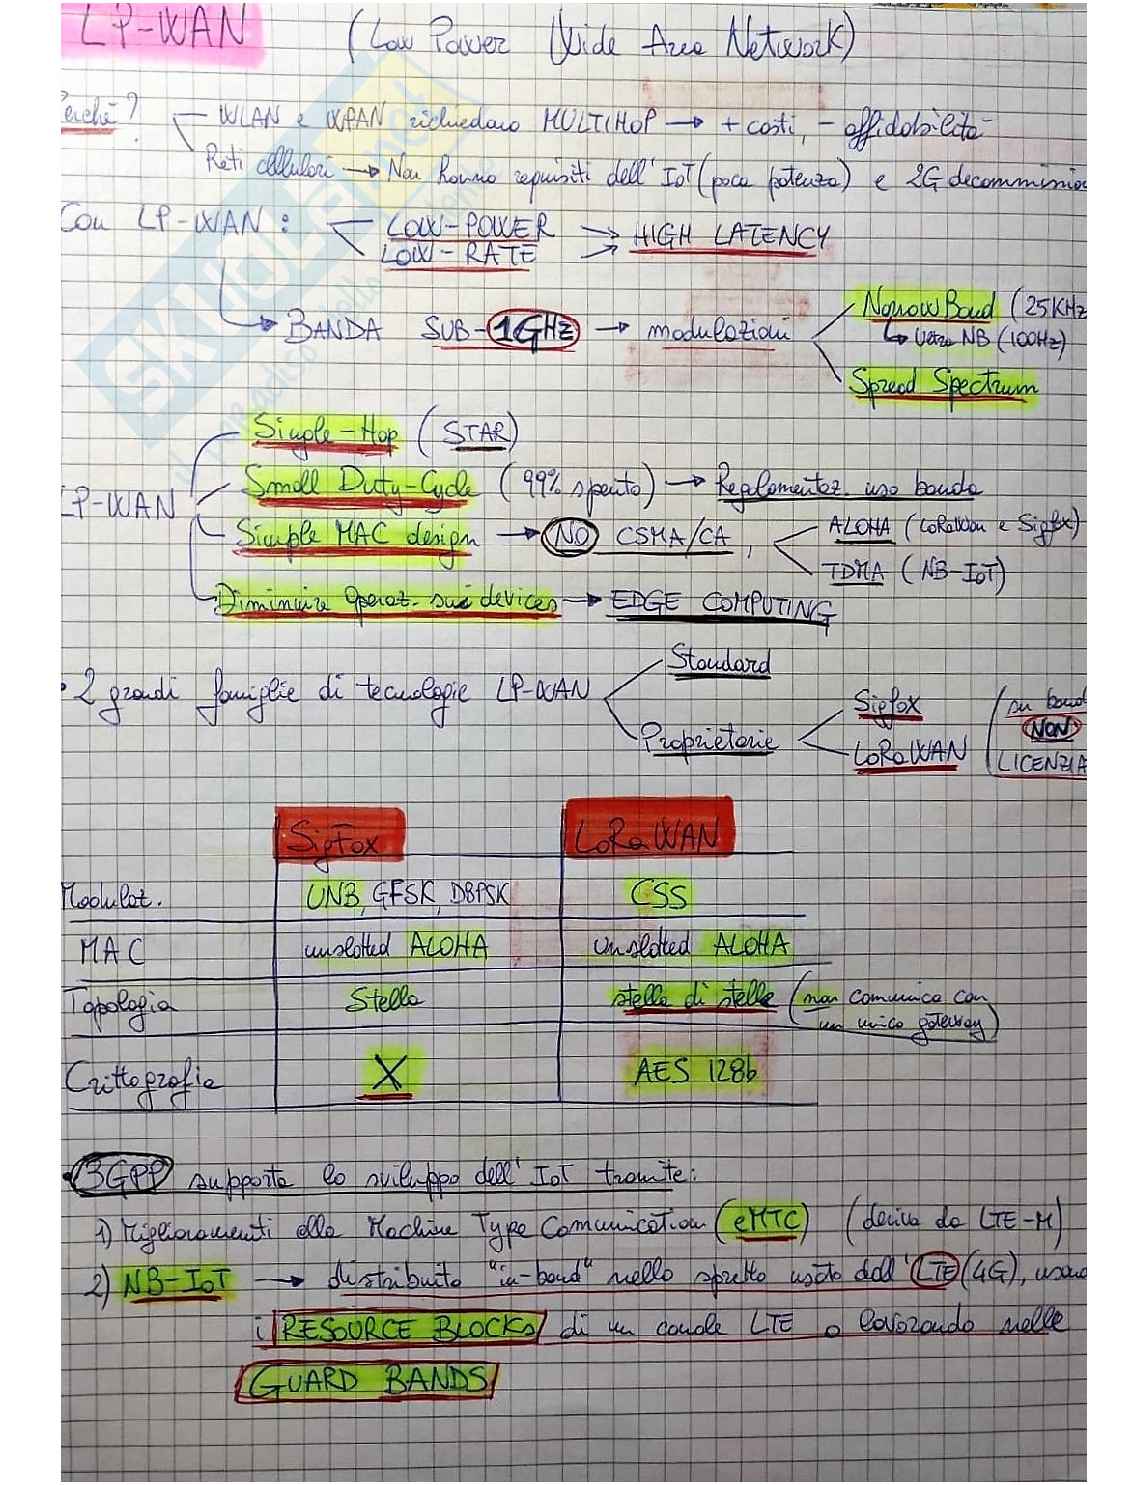 LP-WAN (Low Power Wide Area Network)
Perché? WLAN e WPAN richiedono MULTIHOP → + costi, - affidabilità
Reti cellulari → Non hanno requisiti dell'IoT (poca potenza) e 2G decommission
Con LP-WAN: LOW-POWER → HIGH LATENCY
LOW-RATE →
→ BANDA SUB-1GHz → modulazioni
NarrowBand (25KHz
↳ Ultra NB (100Hz)
Spread Spectrum
Single-Hop (STAR)
Small Duty-Cycle (99% spento) → Regolamentaz. uso banda
LP-WAN
Simple MAC design → NO CSMA/CA, ALOHA (LoRaWan e Sigfox)
TDMA (NB-IoT)
Diminuire operaz. sui devices → EDGE COMPUTING
• 2 grandi famiglie di tecnologie LP-WAN
Standard
Proprietarie
Sigfox
LoRaWAN
(su band
NON
LICENZIA
SigFox LoRaWAN
Modulaz. UNB, GFSK, DBPSK CSS
MAC unslotted ALOHA unslotted ALOHA
Topologia Stella stella di stelle (non comunica con
un unico gateway)
Crittografia X AES 128b
• 3GPP supporta lo sviluppo dell'IoT tramite:
1) Miglioramenti alla Machine Type Comunication (eMTC) (deriva da LTE-M)
2) NB-IoT → distribuito "in-band" nello spettro usato dall'LTE (4G), usando
i RESOURCE BLOCKs di un canale LTE o lavorando nelle
GUARD BANDS
SKUOLA.net